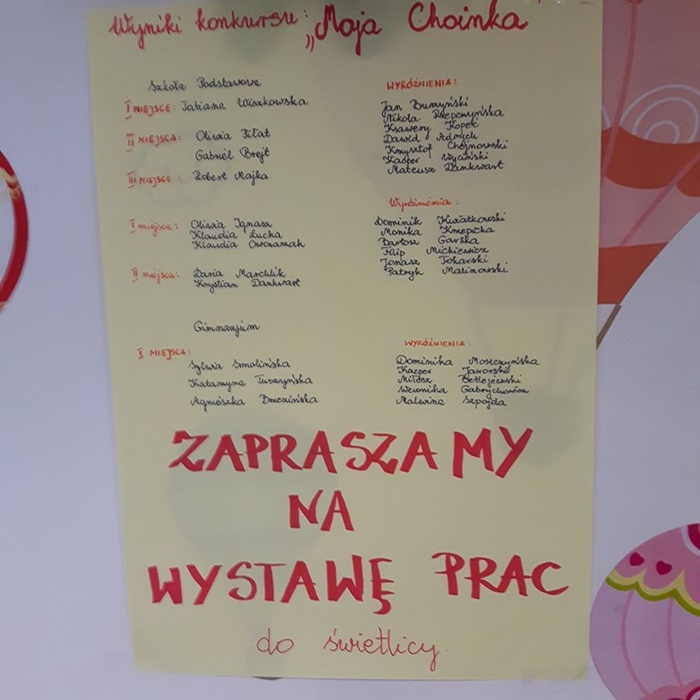 Wyniki konkursu: „Moja Choinka"
Szkoła Podstawowa
I MIEJSCE: Tatiana Wiszkowska
II MIEJSCA: Oliwia Piłat
Gabriel Brejt
III MIEJSCE: Robert Majka
WYRÓŻNIENIA:
Jan Burzyński
Nikola Rzepczyńska
Ksawery Kopeć
Dawid
Krzysztof Chojnowski
Kacper Życiński
Mateusz Dankwart
I miejsca: Oliwia Ignasz
Klaudia Łucka
Klaudia Owczarzak
II miejsca: Daria Marchlik
Krystian Dankwart
Wyróżnienia:
Dominik Kwiatkowski
Monika Knepcka
Bartosz Garska
Filip Mickiewicz
Tomasz Tokarski
Patryk Malinowski
Gimnazjum
I MIEJSCA:
Sylwia Smolińska
Katarzyna Tuszyńska
Agnieszka Brzezińska
WYRÓŻNIENIA:
Dominika Moszczyńska
Kacper Jaworski
Miłosz Betlejewski
Weronika Gabrychowicz
Malwina Szpojda
ZAPRASZAMY
NA
WYSTAWĘ PRAC
do świetlicy.